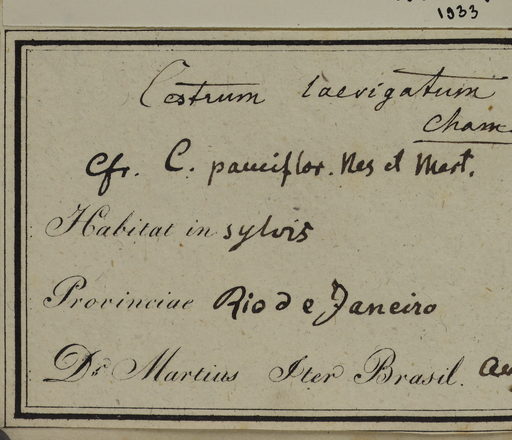 1933
Cestrum laevigatum
Cham
Cfr. C. pauciflor. Nes et Mart.
Habitat in sylvis
Provinciae Rio de Janeiro
Dr Martius Iter Brasil.